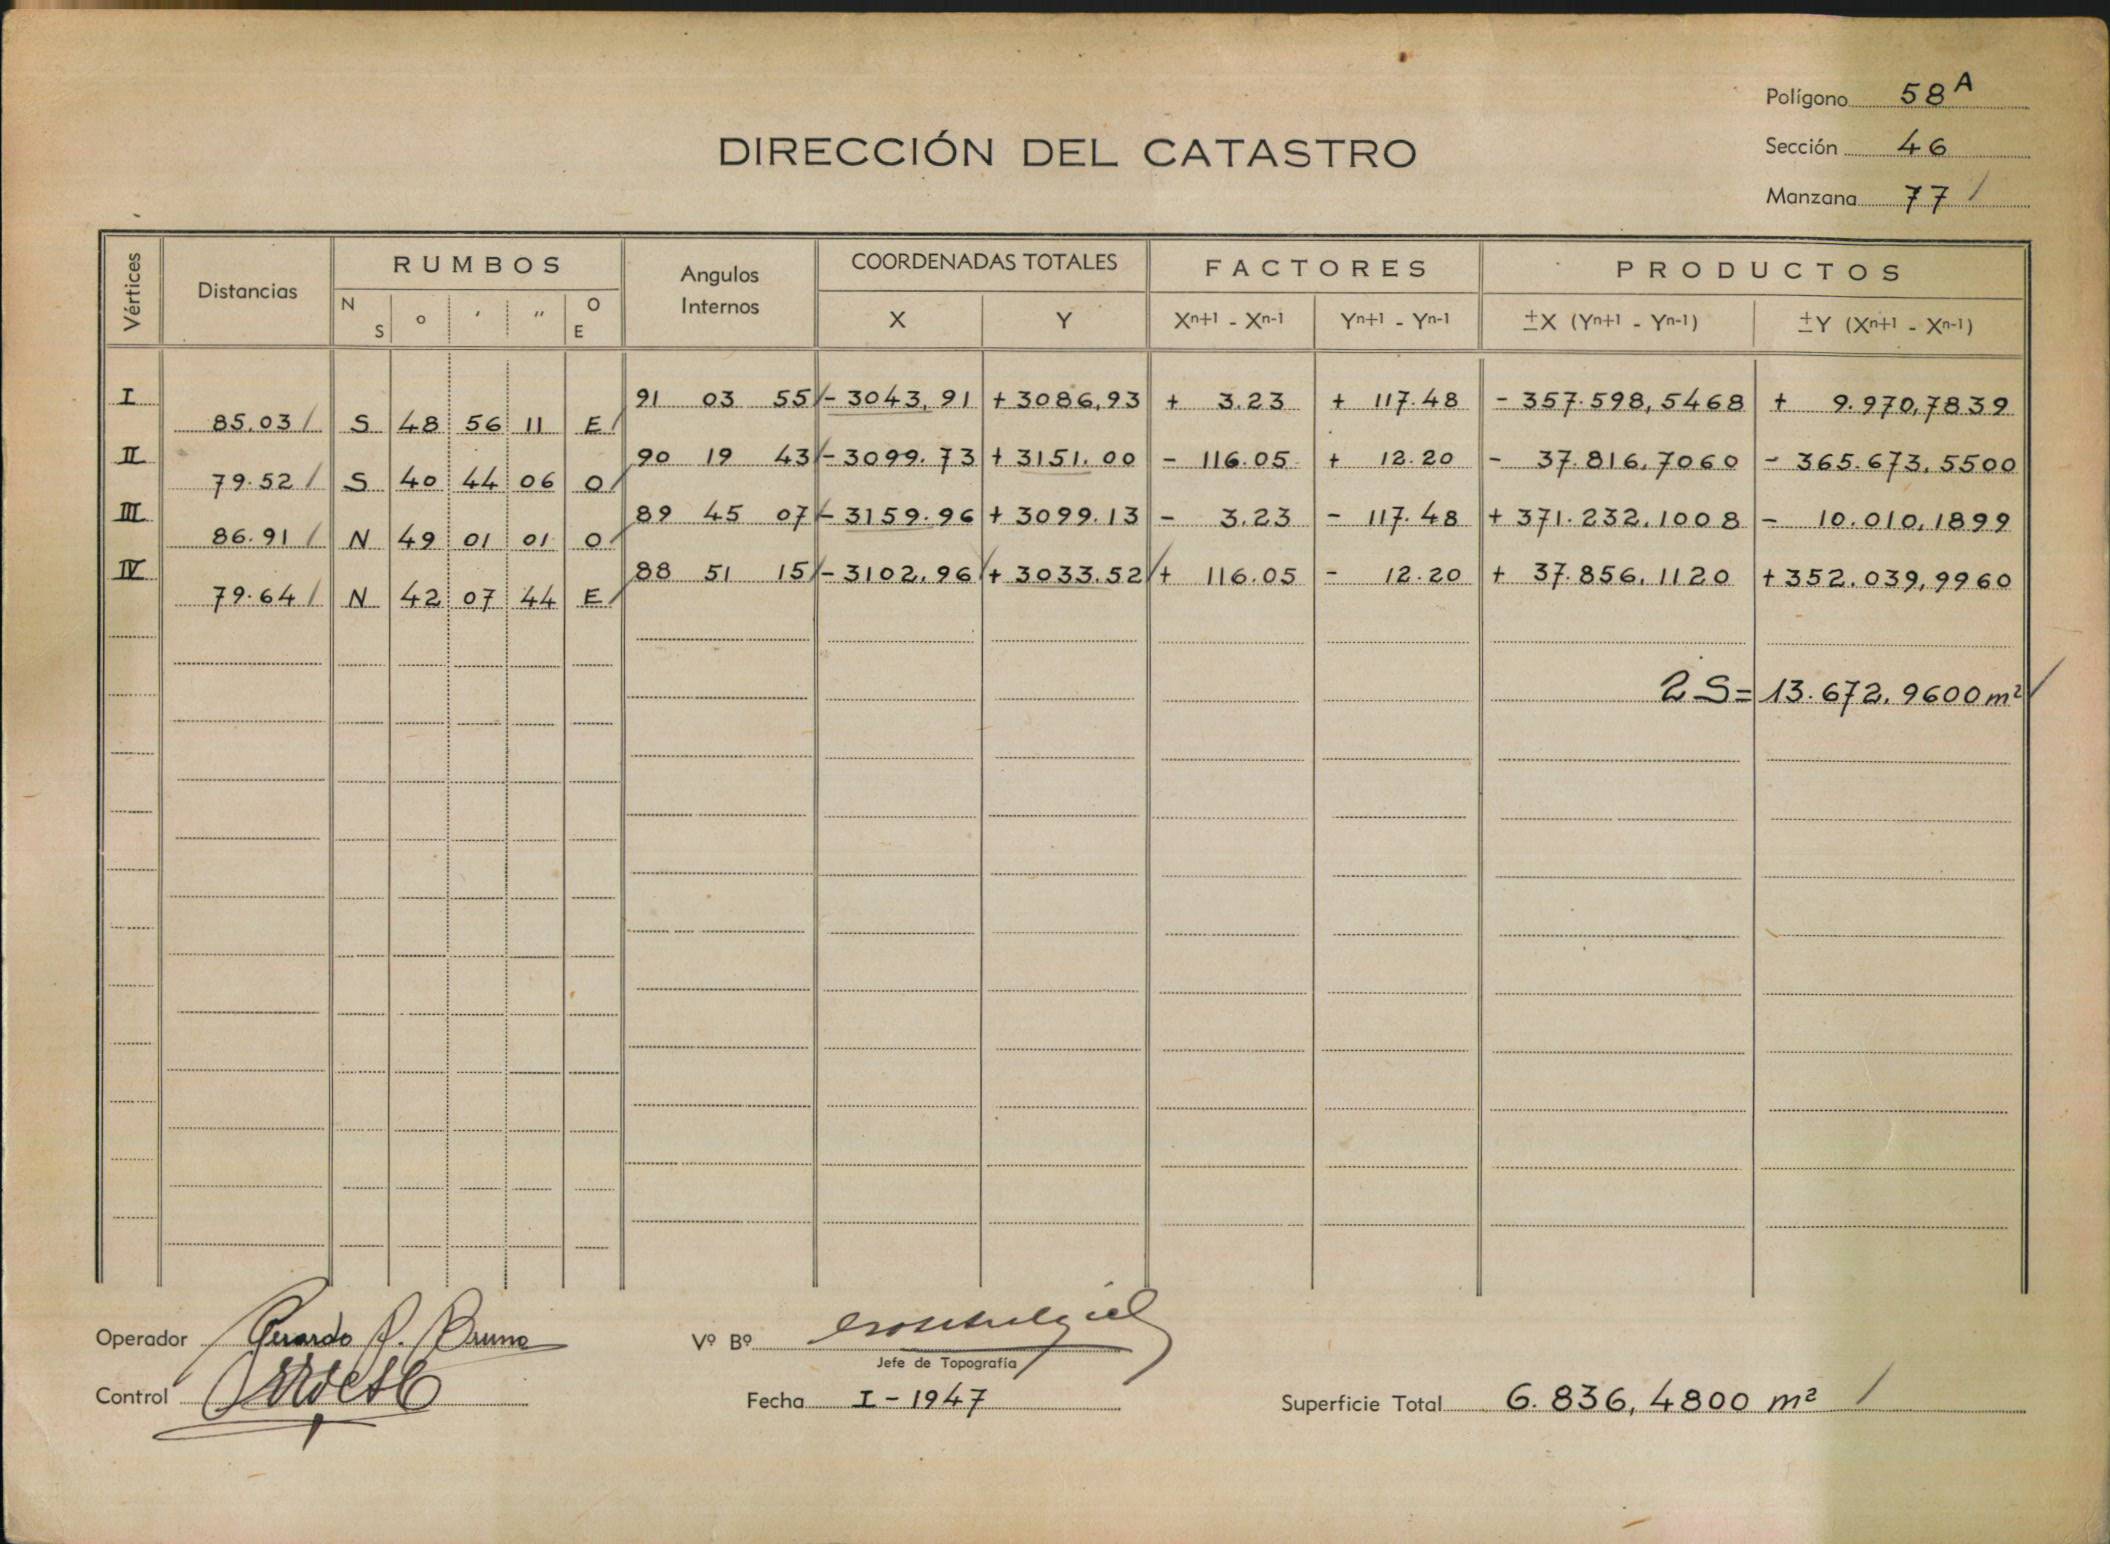 Polígono 58 A
Sección 46
Manzana 77 /
DIRECCIÓN DEL CATASTRO
Vértices Distancias RUMBOS Angulos Internos COORDENADAS TOTALES FACTORES PRODUCTOS
N S o ′ ″ O E X Y Xn+1 - Xn-1 Yn+1 - Yn-1 ±X (Yn+1 - Yn-1) ±Y (Xn+1 - Xn-1)
I 91 03 55 - 3043,91 + 3086,93 + 3.23 + 117.48 - 357.598,5468 + 9.970,7839
85.03 / S 48 56 11 E /
II 90 19 43 - 3099.73 + 3151.00 - 116.05 + 12.20 - 37.816,7060 - 365.673,5500
79.52 / S 40 44 06 O /
III 89 45 07 - 3159.96 + 3099.13 - 3.23 - 117.48 + 371.232,1008 - 10.010,1899
86.91 / N 49 01 01 O /
IV 88 51 15 - 3102,96 + 3033.52 + 116.05 - 12.20 + 37.856,1120 + 352.039,9960
79.64 / N 42 07 44 E /
2 S = 13.672,9600 m²
Operador Gerardo R. Bruno
Vº Bº
Jefe de Topografía
Control
Fecha I - 1947
Superficie Total 6.836,4800 m² /